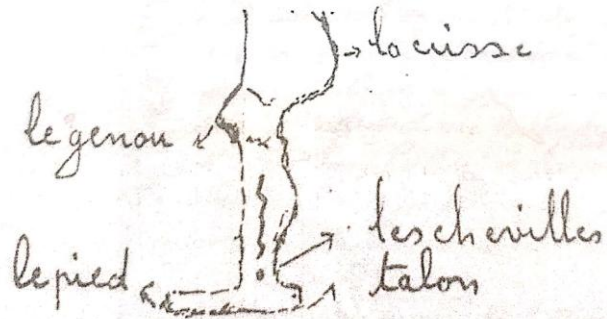 la cuisse
le genou
les chevilles
le pied
talon